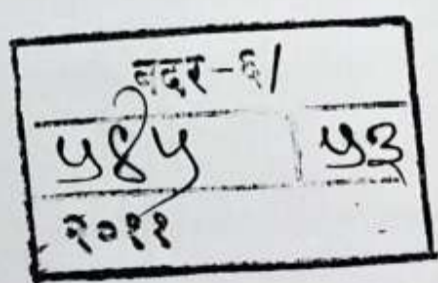 बदर-६/
५४५ ५३
२०११